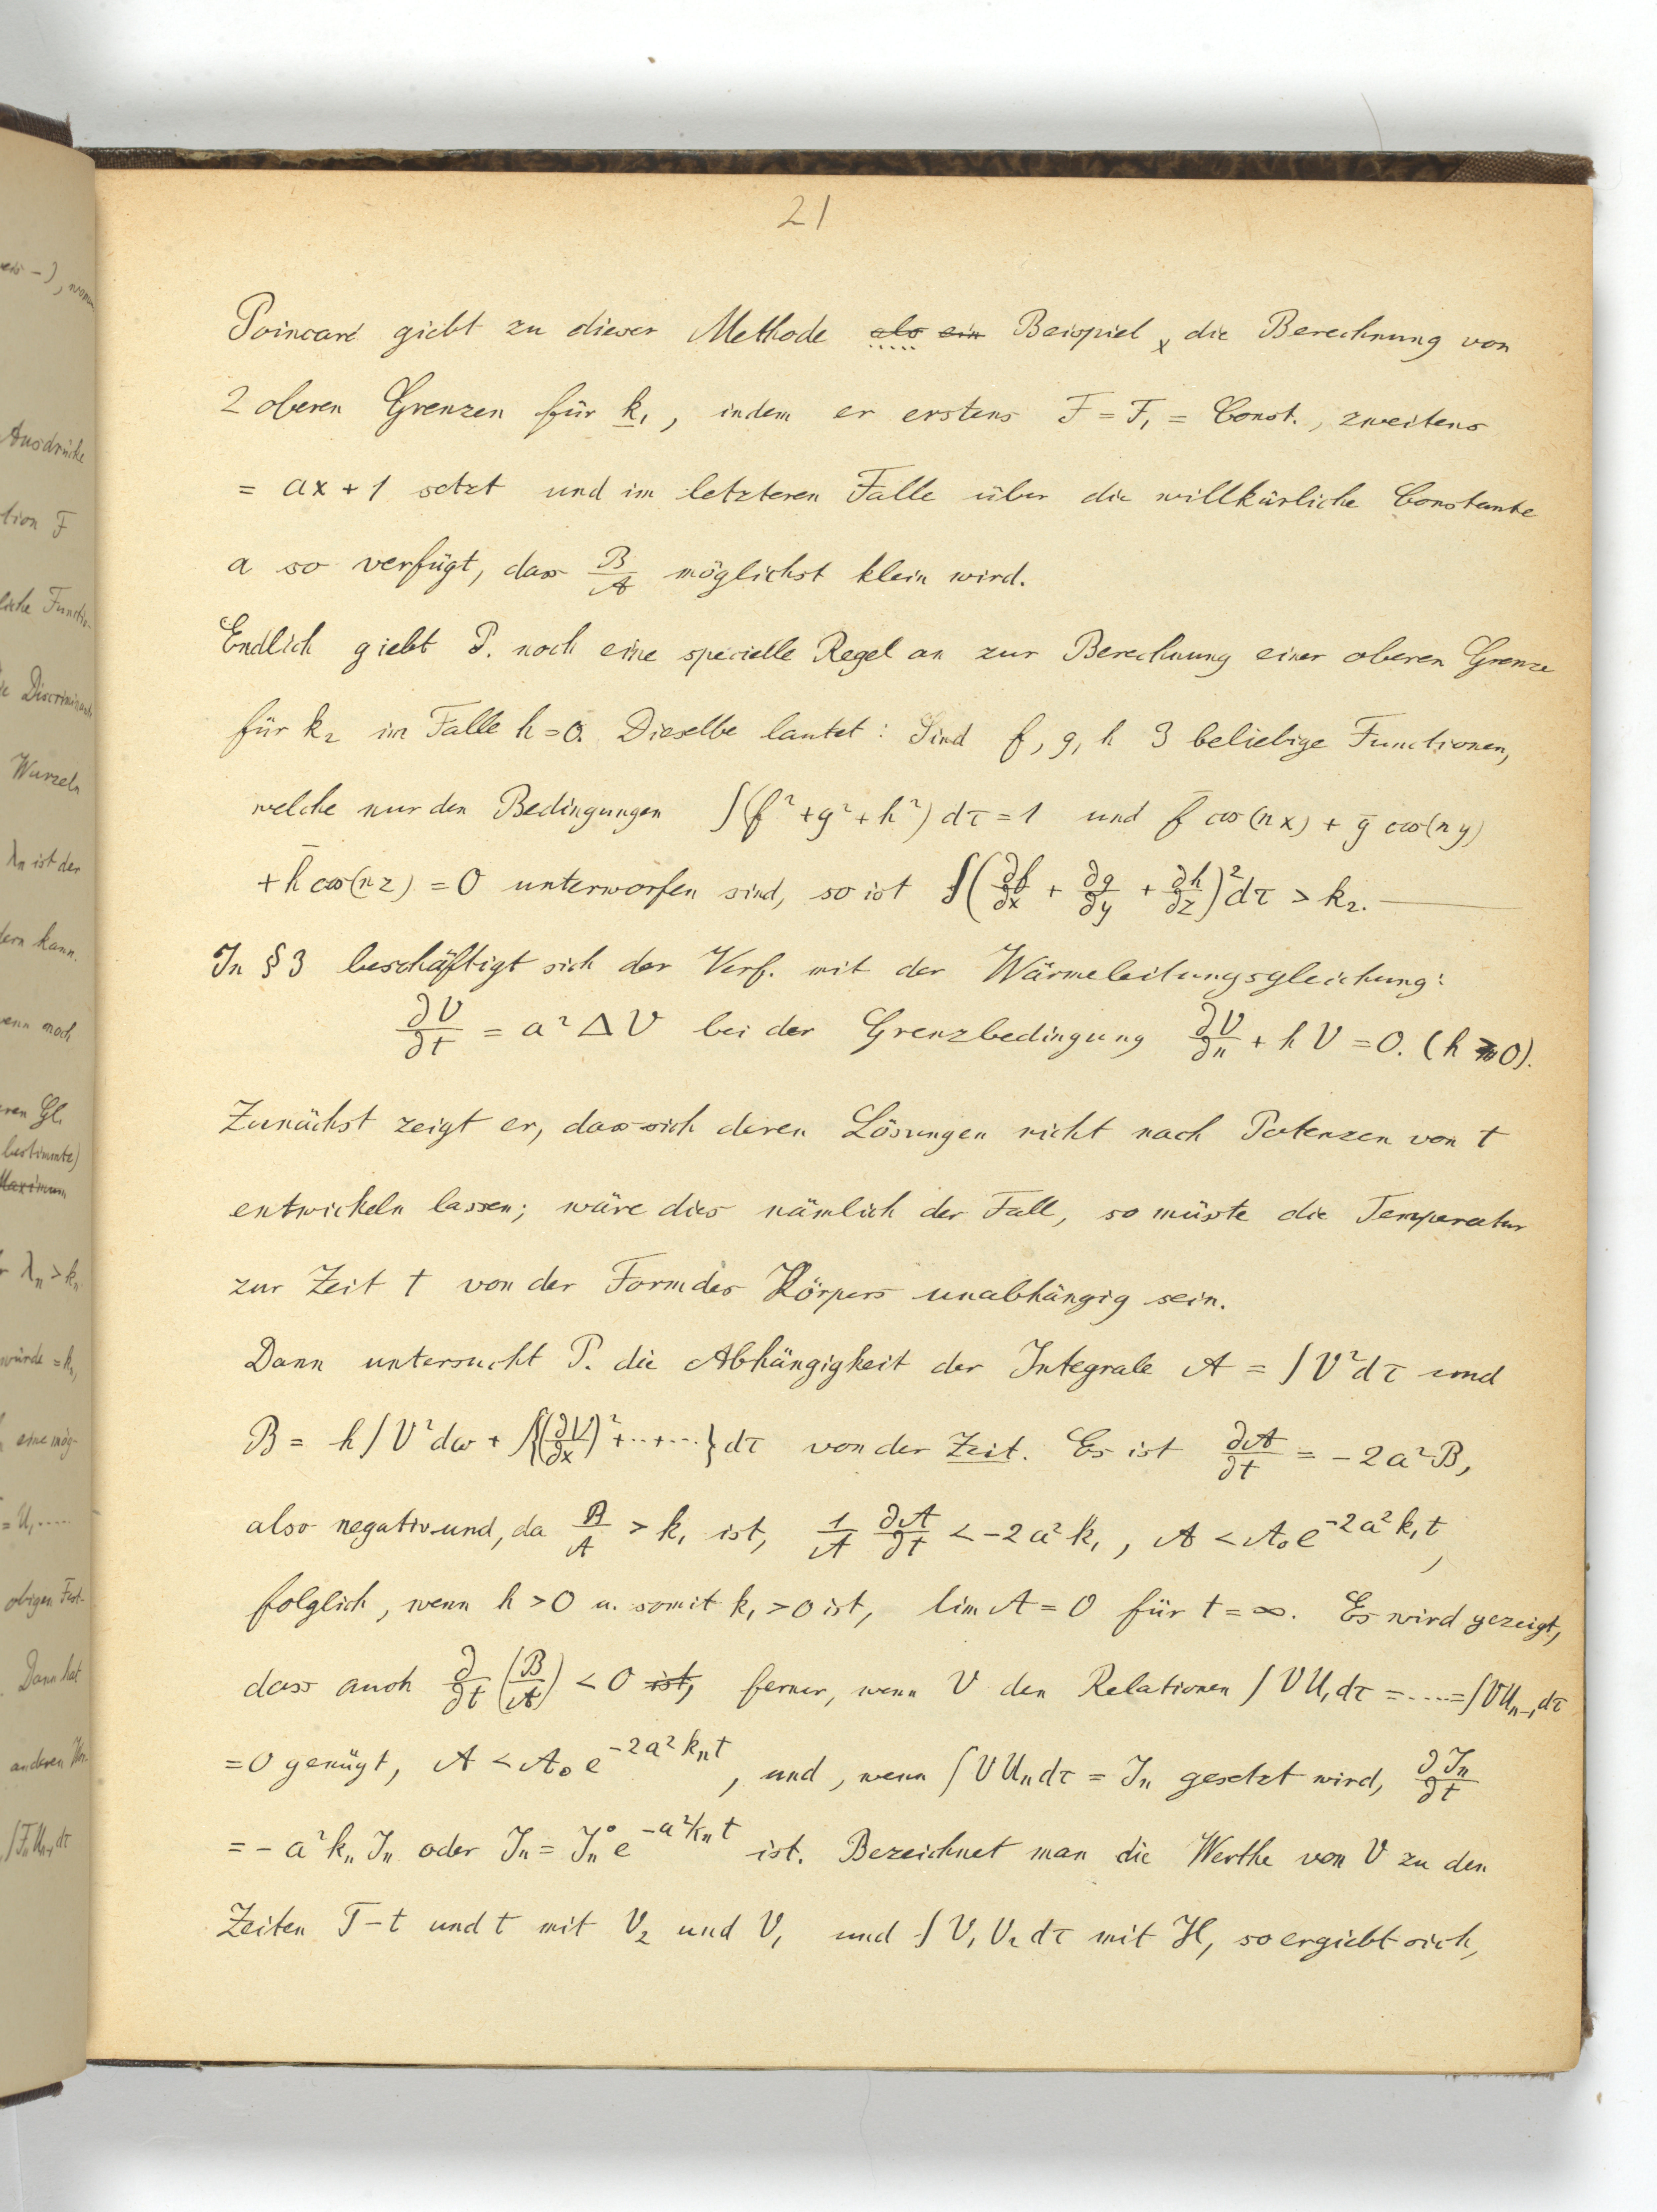 eis –), wenn
Ausdrücke
tion F
sche Functio-
ie Discriminante
Wurzeln
λₙ ist der
dern kann.
wenn noch
eren Gl.
bestimmte)
Maximum
r λₙ > kₙ.
würde = kₙ,
eine mög-
= U, .....
obigen Fest-
. Dann hat
anderen
∫FₙUₙ₋₁dτ
21
Poincaré giebt zu dieser Methode als ein Beispiel ₓ die Berechnung von
2 oberen Grenzen für k₁, indem er erstens F = F₁ = Const., zweitens
= ax + 1 setzt und im letzteren Falle über die willkürliche Constante
a so verfügt, dass B/A möglichst klein wird.
Endlich giebt P. noch eine specielle Regel an zur Berechnung einer oberen Grenze
für k₂ im Falle h = 0. Dieselbe lautet: Sind f, g, h 3 beliebige Functionen,
welche nur den Bedingungen ∫(f² + g² + h²) dτ = 1 und f̄ cos(nx) + ḡ cos(ny)
+ h̄ cos(nz) = 0 unterworfen sind, so ist ∫(∂f/∂x + ∂g/∂y + ∂h/∂z)² dτ > k₂. —
In § 3 beschäftigt sich der Verf. mit der Wärmeleitungsgleichung:
∂V/∂t = a² Δ V bei der Grenzbedingung ∂V/∂n + h V = 0. (h ≥ 0).
Zunächst zeigt er, dass sich deren Lösungen nicht nach Potenzen von t
entwickeln lassen; wäre dies nämlich der Fall, so müsste die Temperatur
zur Zeit t von der Form des Körpers unabhängig sein.
Dann untersucht P. die Abhängigkeit der Integrale A = ∫V² dτ und
B = h∫V² dω + ∫{(∂V/∂x)² + ·· + ···} dτ von der Zeit. Es ist ∂A/∂t = – 2a² B,
also negativ und, da B/A > k₁ ist, 1/A ∂A/∂t < – 2a² k₁, A < A₀ e^{–2a² k₁ t},
folglich, wenn h > 0 u. somit k₁ > 0 ist, lim A = 0 für t = ∞. Es wird gezeigt,
dass auch ∂/∂t (B/A) < 0 ist, ferner, wenn V den Relationen ∫VU₁dτ = ····· = ∫VUₙ₋₁dτ
= 0 genügt, A < A₀ e^{–2a² kₙ t}, und, wenn ∫V Uₙ dτ = Jₙ gesetzt wird, ∂Jₙ/∂t
= – a² kₙ Jₙ oder Jₙ = Jₙ° e^{–a² kₙ t} ist. Bezeichnet man die Werthe von V zu den
Zeiten T – t und t mit V₂ und V₁ und ∫V₁ V₂ dτ mit H, so ergiebt sich,